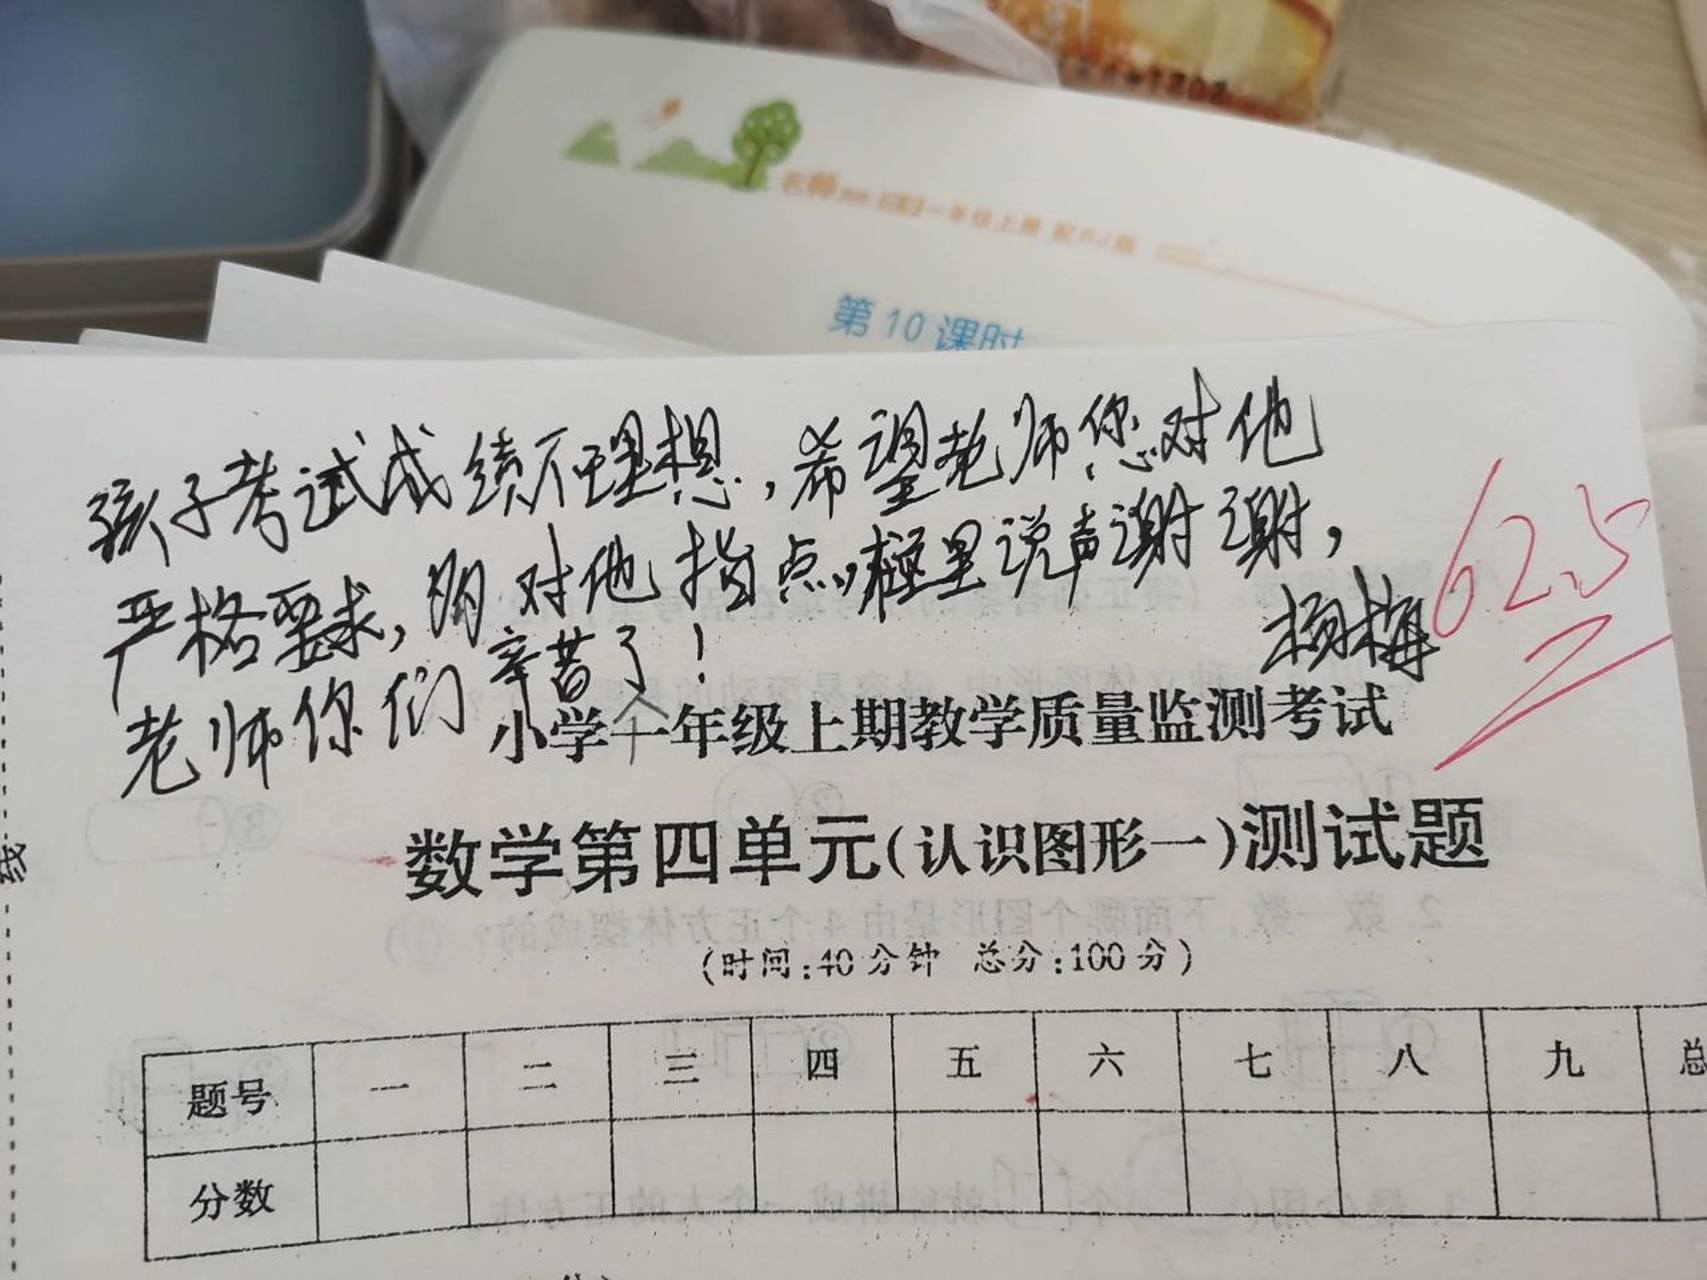 第10课时
孩子考试成绩不理想,希望老师您对他
严格要求,多对他指点,這里说声谢谢,
老师你们辛苦了!
杨梅
62.5
小学一年级上期教学质量监测考试
数学第四单元(认识图形一)测试题
(时间:40分钟 总分:100分)
题号 一 二 三 四 五 六 七 八 九 总
分数
线